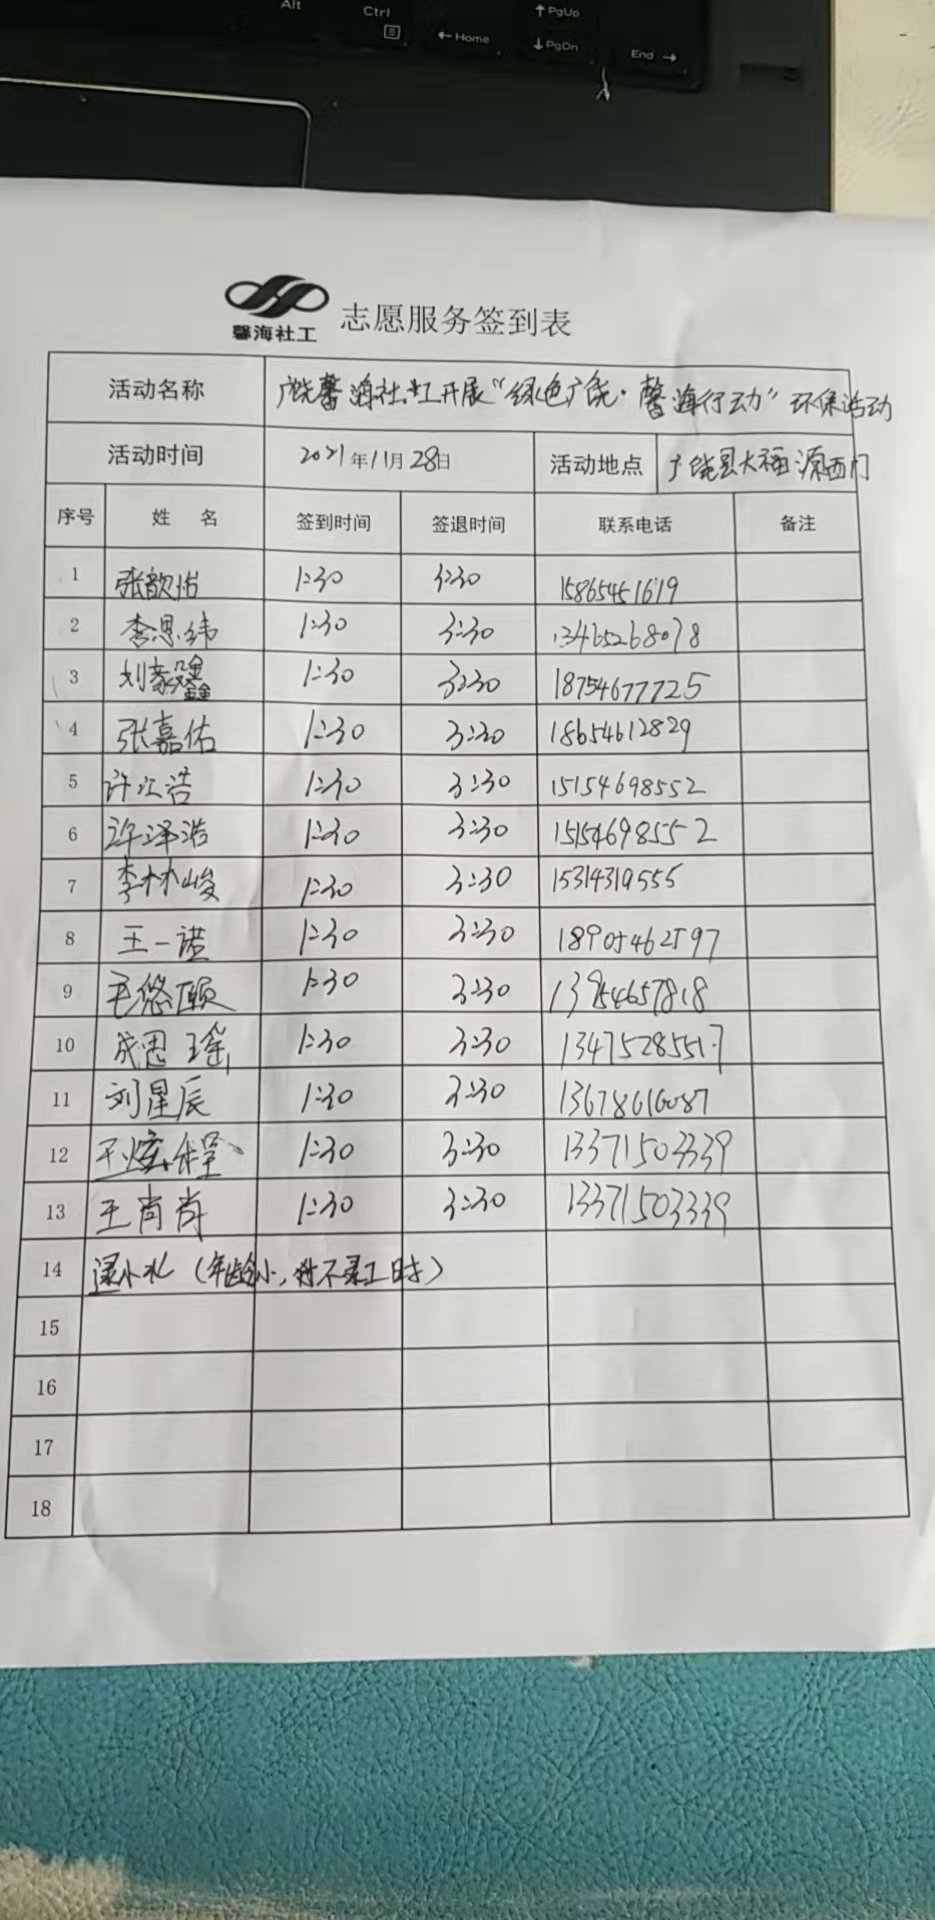 Alt
Ctrl
PgUp
Home
PgDn
End
馨海社工
志愿服务签到表
活动名称 广饶馨海社工开展“绿色广饶·馨海行动”环保活动
活动时间 2021年11月28日 活动地点 广饶县大福源西门
序号 姓 名 签到时间 签退时间 联系电话 备注
1 张歆怡 1:30 3:30 15865451619
2 李思纬 1:30 3:30 13465268078
3 刘家鑫 1:30 3:30 18754677725
4 张嘉佑 1:30 3:30 18654612829
5 许汇浩 1:30 3:30 15154698552
6 许泽浩 1:30 3:30 15154698552
7 李林峻 1:30 3:30 15314319555
8 王一诺 1:30 3:30 18905462597
9 毛悠颐 1:30 3:30 13954657818
10 成思瑶 1:30 3:30 13475285517
11 刘星辰 1:30 3:30 13678616087
12 1:30 3:30 13371503339
13 王肖肖 1:30 3:30 13371503339
14 (年龄小, 不录工时)
15
16
17
18